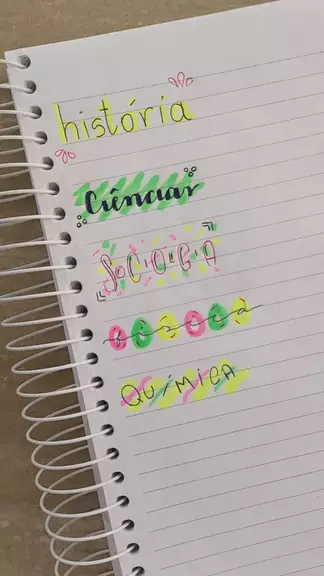 história
Ciências
física
QUÍMICA